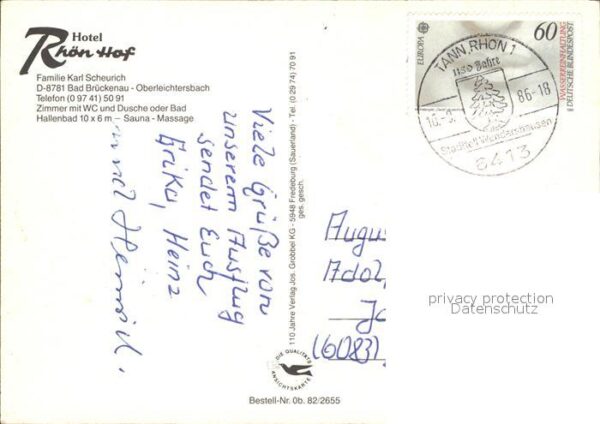 Hotel
Rhön Hof
Familie Karl Scheurich
D-8781 Bad Brückenau - Oberleichtersbach
Telefon (0 97 41) 50 91
Zimmer mit WC und Dusche oder Bad
Hallenbad 10 x 6 m – Sauna - Massage
Viele Grüße vom
unserem Ausflug
sendet Euch
Erika, Heinz
und
110 Jahre Verlag Jos. Grobbel KG - 5948 Fredeburg (Sauerland) - Tel. (0 29 74) 70 91
ges. gesch.
EUROPA
60
WASSERREINHALTUNG
DEUTSCHE BUNDESPOST
TANN, RHÖN 1
1150 Jahre
86-18
Stadtteil Wendershausen
6413
Augu
Adol
(6083)
privacy protection
Datenschutz
DIE QUALITÄTS
ANSICHTSKARTE
Bestell-Nr. Ob. 82/2655